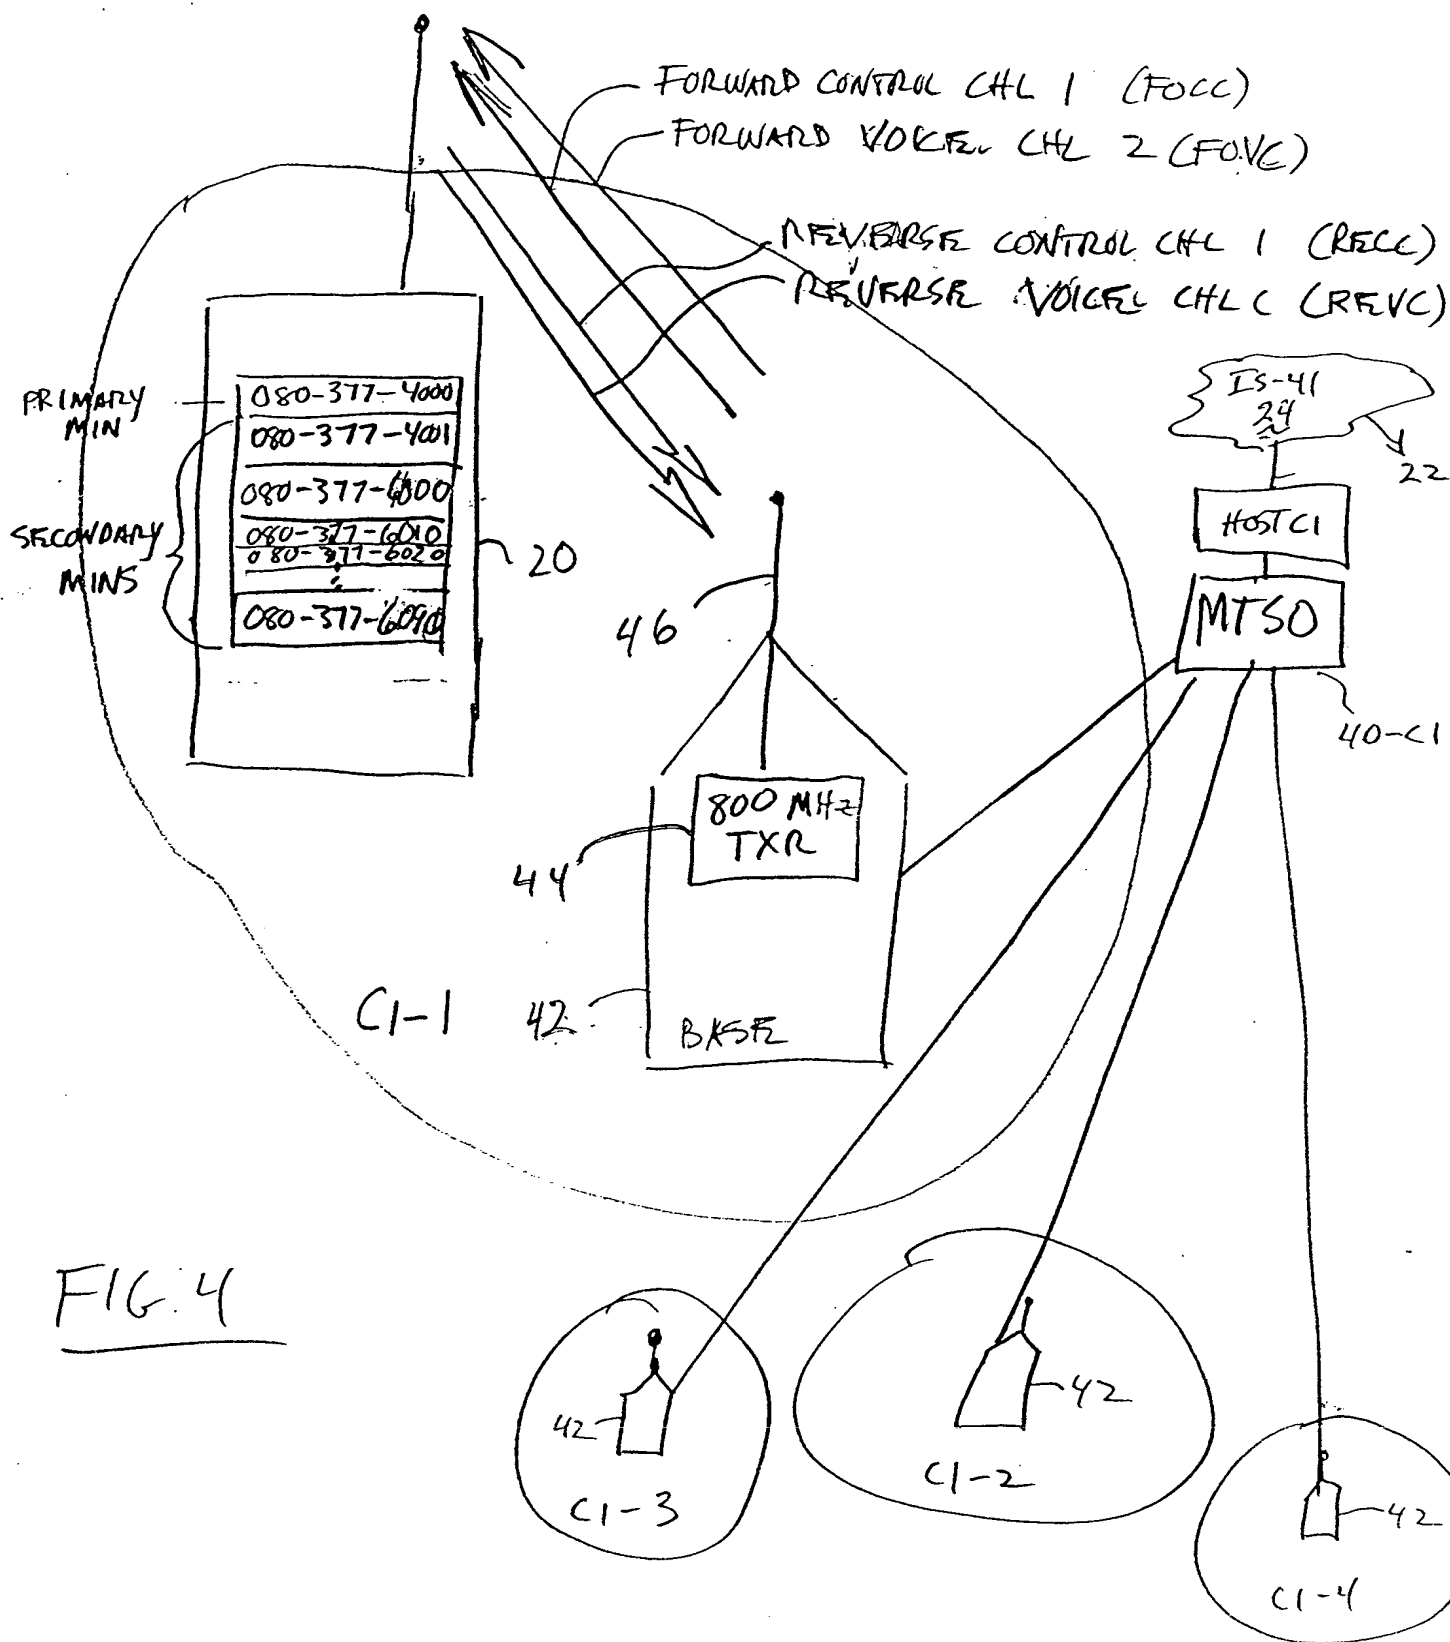 FORWARD CONTROL CHL 1 (FOCC)
FORWARD VOICE CHL 2 (FOVC)
REVERSE CONTROL CHL 1 (RECC)
REVERSE VOICE CHL (REVC)
PRIMARY
MIN
080-377-4000
080-377-4001
080-377-6000
080-377-6010
080-377-6020
080-377-6090
SECONDARY
MINS
20
IS-41
24
22
HOST C1
MTSO
40-C1
46
800 MHz
TXR
44
C1-1
42
BASE
FIG. 4
42
C1-3
42
C1-2
42
C1-4